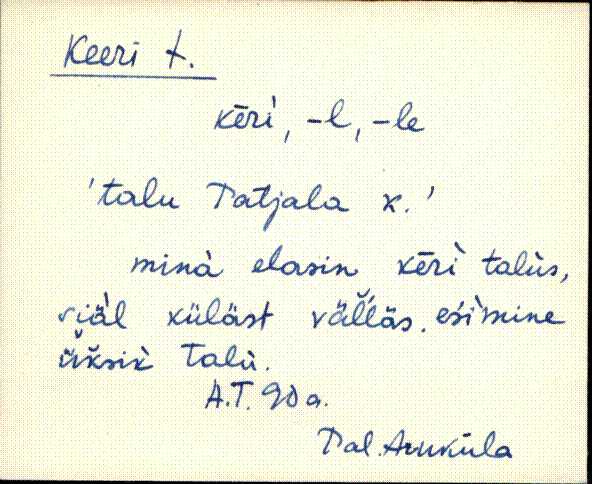 Keeri t.
kērì̬, -l, -le
'talu Patjala k.'
minà elasin kērì talùs,
siäl küläst vällä̆s. esìmine
ük̆sik̀ talù.
A.T. 90 a.
Pal. Aruküla